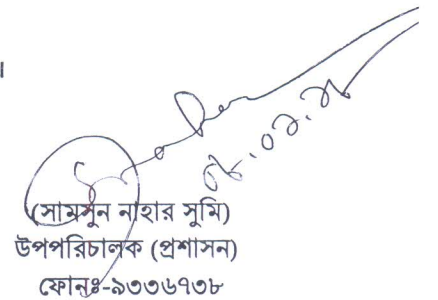 ।
(সামসুন নাহার সুমি)
উপপরিচালক (প্রশাসন)
ফোনঃ-৯৩৩৬৭৩৮